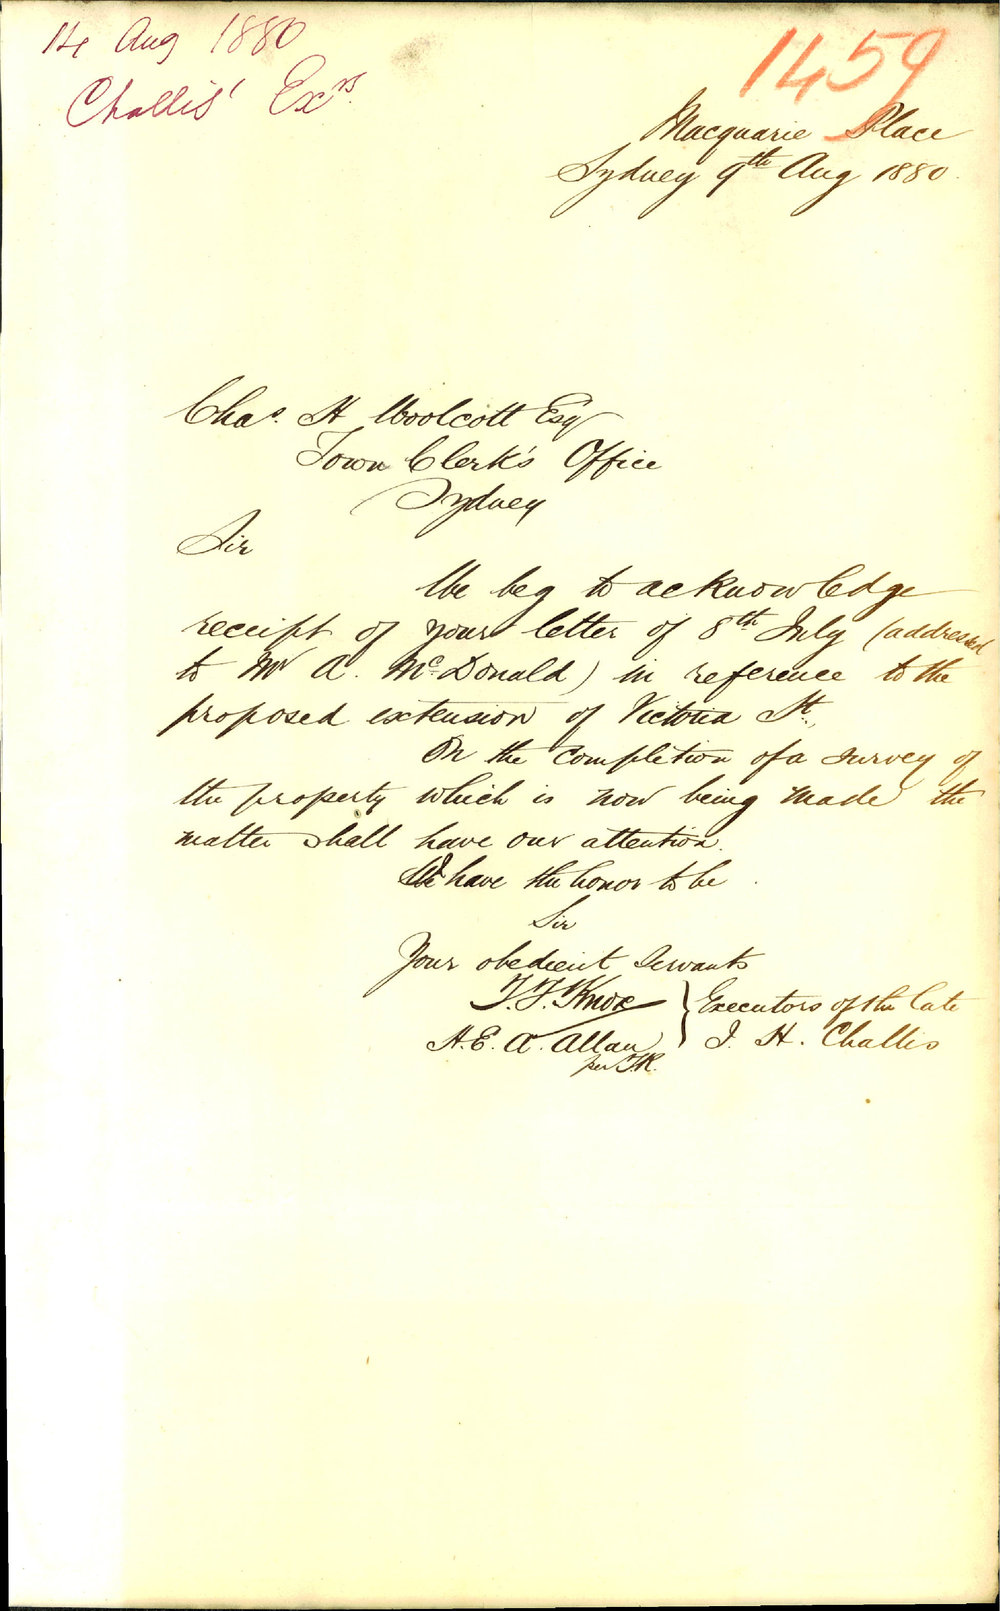 14 Aug 1880
Challis' Exrs.
1459
Macquarie Place
Sydney 9th Aug 1880.
Chas. H Woolcott Esq
Town Clerk's Office
Sydney
Sir
We beg to acknowledge
receipt of your letter of 8th July (addressed
to Mr A. McDonald) in reference to the
proposed extension of Victoria St.,
On the completion of a survey of
the property which is now being made the
matter shall have our attention.
We have the honor to be
Sir
Your obedient Servants
T. F. Knox } Executors of the late
H. E. A. Allan } J. H. Challis
per T.K.